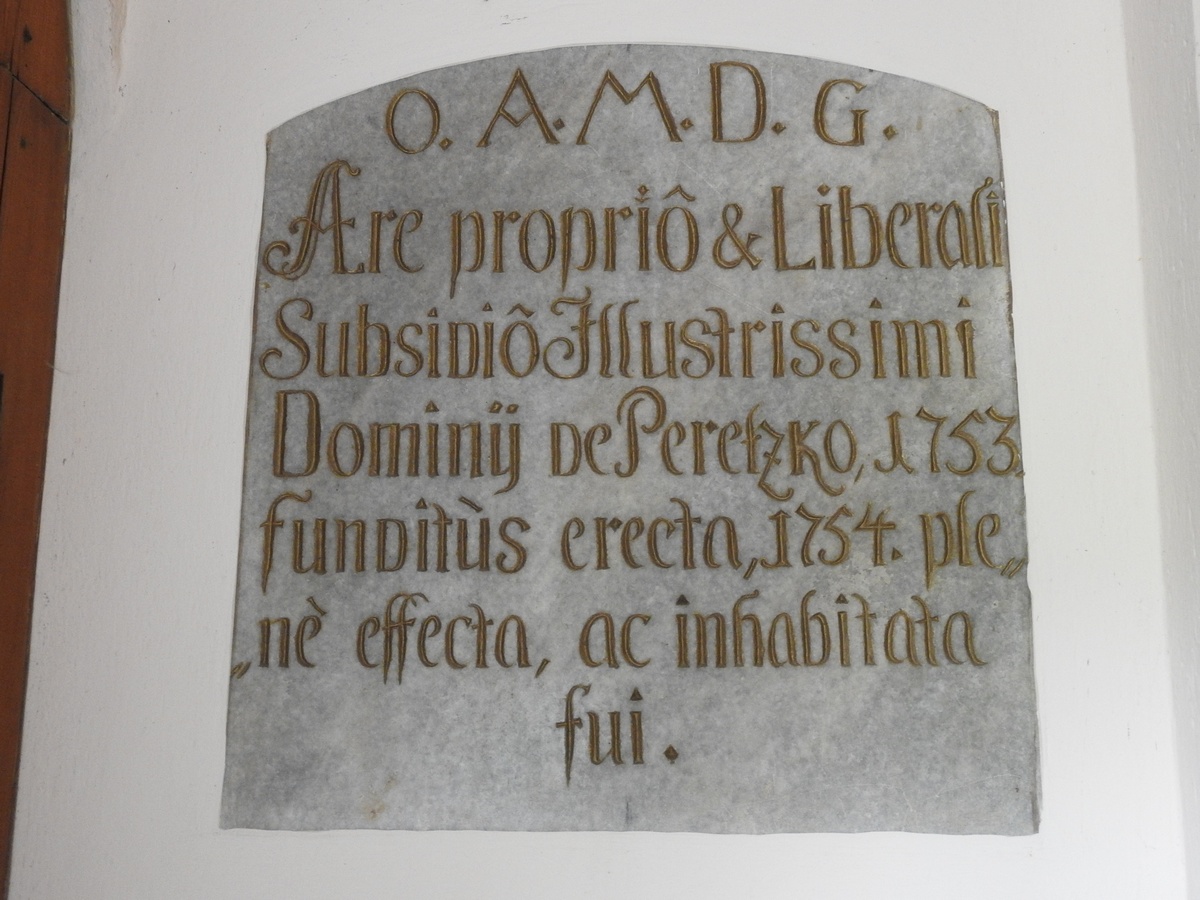 O. A. M. D. G.
Ære propriô & Liberali
Subsidiô Illustrissimi
Dominÿ de Peretzko, 1753,
funditùs erecta, 1754. ple„
„nè effecta, ac inhabitata
fui.